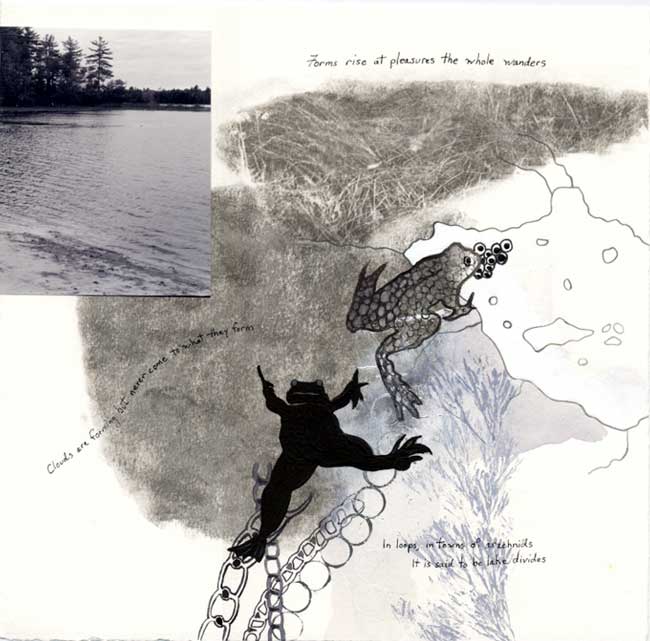 Forms rise at pleasures the whole wanders
Clouds are forming but never come to what they form
In loops, in towns of arachnids
It is said to be lake divides